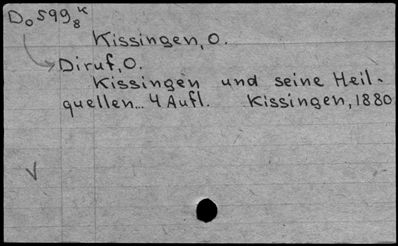 Do 599 k
8
Kissingen, O.
Diruf, O.
Kissingen und seine Heil-
quellen... 4 Aufl. Kissingen, 1880